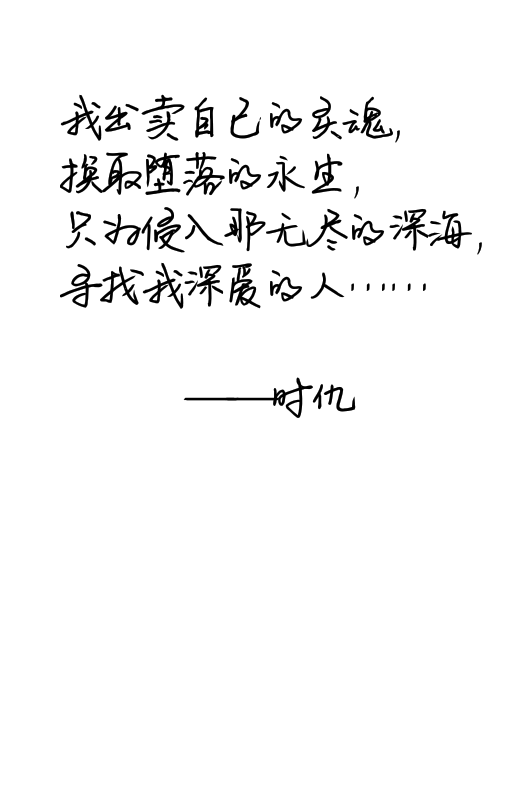 我出卖自己的灵魂,
换取堕落的永生,
只为侵入那无尽的深海,
寻找我深爱的人……
——时仇